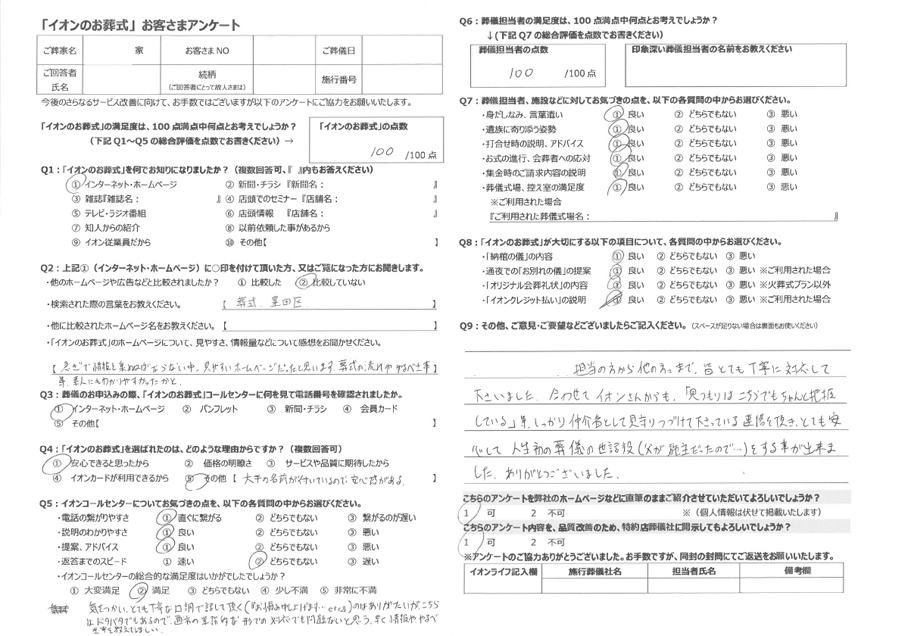 「イオンのお葬式」お客さまアンケート
ご葬家名 家 お客さまNO ご葬儀日
ご回答者氏名 続柄(ご回答者にとって故人さまは) 施行番号
今後のさらなるサービス改善に向けて、お手数ではございますが以下のアンケートにご協力をお願いいたします。
「イオンのお葬式」の満足度は、100点満点中何点とお考えでしょうか？
(下記Q1～Q5の総合評価を点数でお書きください) →
「イオンのお葬式」の点数
100 /100点
Q1：「イオンのお葬式」を何でお知りになりましたか？（複数回答可、『 』内もお答えください）
① インターネット・ホームページ ② 新聞・チラシ『新聞名： 』
③ 雑誌『雑誌名： 』 ④ 店頭でのセミナー『店舗名： 』
⑤ テレビ・ラジオ番組 ⑥ 店頭情報 『店舗名： 』
⑦ 知人からの紹介 ⑧ 以前依頼した事があるから
⑨ イオン従業員だから ⑩ その他【 】
Q2：上記①（インターネット・ホームページ）に○印を付けて頂いた方、又はご覧になった方にお聞きします。
・他のホームページや広告などと比較されましたか？ ① 比較した ② 比較していない
・検索された際の言葉をお教えください。 【 葬式、墨田区 】
・他に比較されたホームページ名をお教えください。【 】
・「イオンのお葬式」のホームページについて、見やすさ、情報量などについて感想をお聞かせください。
【 急ぎで情報を集めねばならない中、見やすいホームページだったと思います。葬式の流れややるべき事 】
等、素人にもわかりやすかったかと。
Q3：葬儀のお申込みの際、「イオンのお葬式」コールセンターに何を見て電話番号を確認されましたか。
① インターネット・ホームページ ② パンフレット ③ 新聞・チラシ ④ 会員カード
⑤ その他【 】
Q4：「イオンのお葬式」を選ばれたのは、どのような理由からですか？（複数回答可）
① 安心できると思ったから ② 価格の明瞭さ ③ サービスや品質に期待したから
④ イオンカードが利用できるから ⑤ その他【 大手の名前が付いているので、安心感がある。 】
Q5：イオンコールセンターについてお気づきの点を、以下の各質問の中からお選びください。
・電話の繋がりやすさ ① 直ぐに繋がる ② どちらでもない ③ 繋がるのが遅い
・説明のわかりやすさ ① 良い ② どちらでもない ③ 悪い
・提案、アドバイス ① 良い ② どちらでもない ③ 悪い
・返答までのスピード ① 速い ② どちらでもない ③ 悪い
・イオンコールセンターの総合的な満足度はいかがでしたでしょうか？
① 大変満足 ② 満足 ③ どちらでもない ④ 少し不満 ⑤ 非常に不満
気をつかい、とても丁寧な口調で話して頂く(『お悔み申し上げます…etc』)のはありがたいが、こちら
はドタバタでもあるので、通常の業務的な形での対応でも問題ないと思う。早く情報ややるべ
き事を教えてほしい。
Q6：葬儀担当者の満足度は、100点満点中何点とお考えでしょうか？
↓(下記Q7の総合評価を点数でお書きください)
葬儀担当者の点数 印象深い葬儀担当者の名前をお教えください
100 /100点
Q7：葬儀担当者、施設などに対してお気づきの点を、以下の各質問の中からお選びください。
・身だしなみ、言葉遣い ① 良い ② どちらでもない ③ 悪い
・遺族に寄り添う姿勢 ① 良い ② どちらでもない ③ 悪い
・打合せ時の説明、アドバイス ① 良い ② どちらでもない ③ 悪い
・お式の進行、会葬者への応対 ① 良い ② どちらでもない ③ 悪い
・集金時のご請求内容の説明 ① 良い ② どちらでもない ③ 悪い
・葬儀式場、控え室の満足度 ① 良い ② どちらでもない ③ 悪い
※ご利用された場合
『ご利用された葬儀式場名： 』
Q8：「イオンのお葬式」が大切にする以下の項目について、各質問の中からお選びください。
・「納棺の儀」の内容 ① 良い ② どちらでもない ③ 悪い
・通夜での「お別れの儀」の提案 ① 良い ② どちらでもない ③ 悪い ※ご利用された場合
・「オリジナル会葬礼状」の内容 ① 良い ② どちらでもない ③ 悪い ※火葬式プラン以外
・「イオンクレジット払い」の説明 ① 良い ② どちらでもない ③ 悪い ※ご利用された場合
Q9：その他、ご意見・ご要望などございましたらご記入ください。（スペースが足りない場合は裏面もお使いください）
担当の方から他の方まで、皆とても丁寧に対応して
下さいました。合わせてイオンさんからも、「見つもりはこちらでもちゃんと把握
している」等、しっかり仲介者として見守りつづけて下さっている連絡を頂き、とても安
心して人生初葬儀の世話役(父が喪主だったので…)をする事が出来ま
した。ありがとうございました。
こちらのアンケートを弊社のホームページなどに直筆のままご紹介させていただいてよろしいでしょうか？
1 可 2 不可 ※（個人情報は伏せて掲載いたします）
こちらのアンケート内容を、品質改善のため、特約店葬儀社に開示してもよろしいでしょうか？
1 可 2 不可
※アンケートのご協力ありがとうございました。お手数ですが、同封の封筒にてご返送をお願いいたします。
イオンライフ記入欄 施行葬儀社名 担当者氏名 備考欄